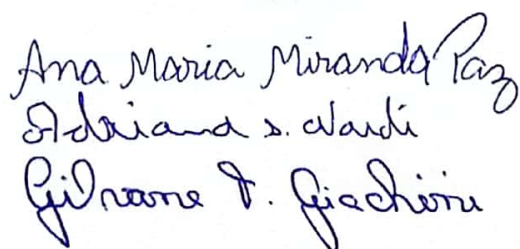 Ana Maria Miranda Paz
Adriana S. Nardi
Gilvane T. Giachini